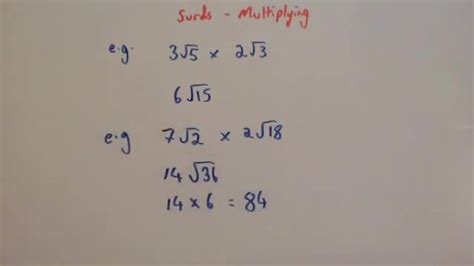 Surds - Multiplying
e.g. 3√5 × 2√3
6√15
e.g 7√2 × 2√18
14√36
14 × 6 = 84